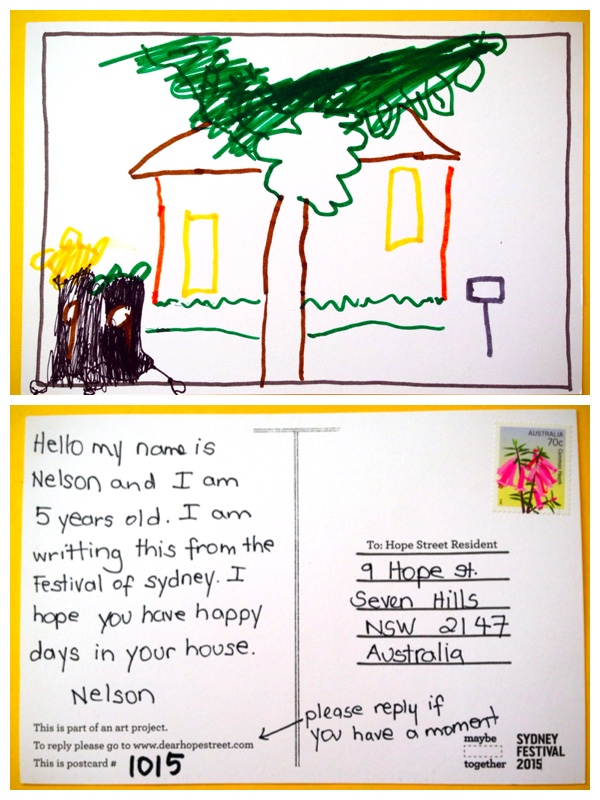 Hello my name is
Nelson and I am
5 years old. I am
writting this from the
Festival of sydney. I
hope you have happy
days in your house.
Nelson
This is part of an art project.
To reply please go to www.dearhopestreet.com
This is postcard # 1015
please reply if
you have a moment
AUSTRALIA
70c
Common Heath
To: Hope Street Resident
9 Hope st.
Seven Hills
NSW 2147
Australia
maybe
together
SYDNEY
FESTIVAL
2015